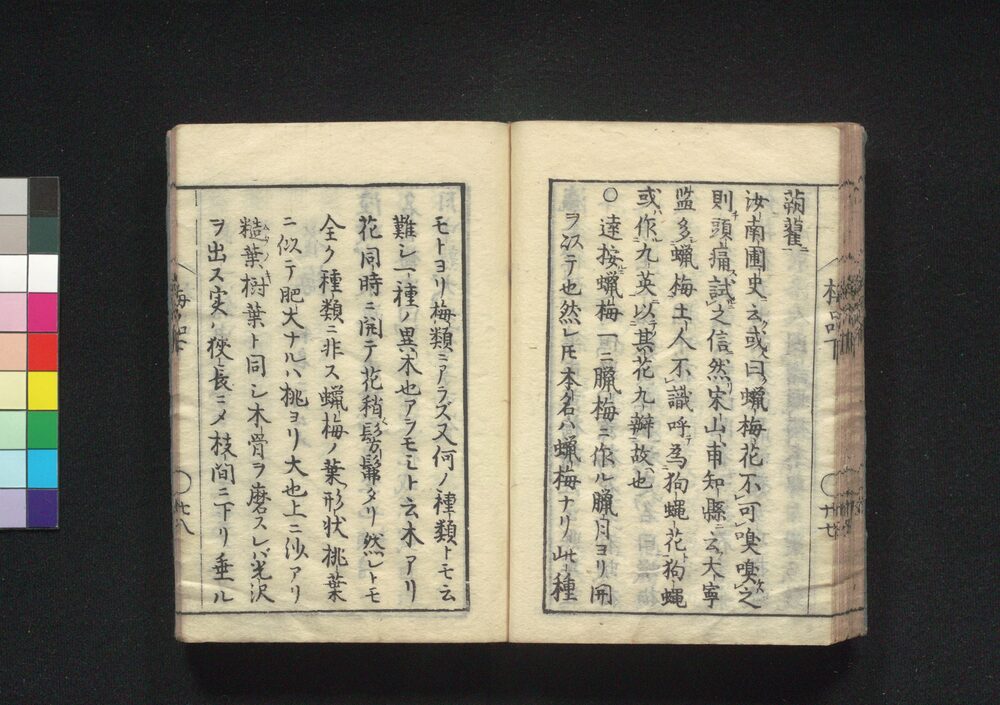 蒴藋ニ
汝南圃史ニ云或曰蝋梅花不可嗅嗅之
則頭痛試之信然宋山甫知縣云大寧
監多蝋梅土人不識呼為狗蝿花狗蝿
或作九英以其花九辧故也
○達按蝋梅一ニ臘梅ニ作ル臘月ヨリ開
ヲ以テ也然レトモ本名ハ蝋梅ナリ此種
モトヨリ梅類ニアラズ又何ノ種類トモ云
難シ一種ノ異木也アラモミト云木アリ
花同時ニ開テ花稍髣髴タリ然レトモ
全ク種類ニ非ス蝋梅ノ葉形状桃葉
ニ似テ肥大ナルハ桃ヨリ大也上ニ沙アリ
糙葉樹葉ト同シ木骨ヲ磨スレバ光沢
ヲ出ス実ハ狹長ニメ枝間ニ下リ垂ル
梅品下
廿七
廿八